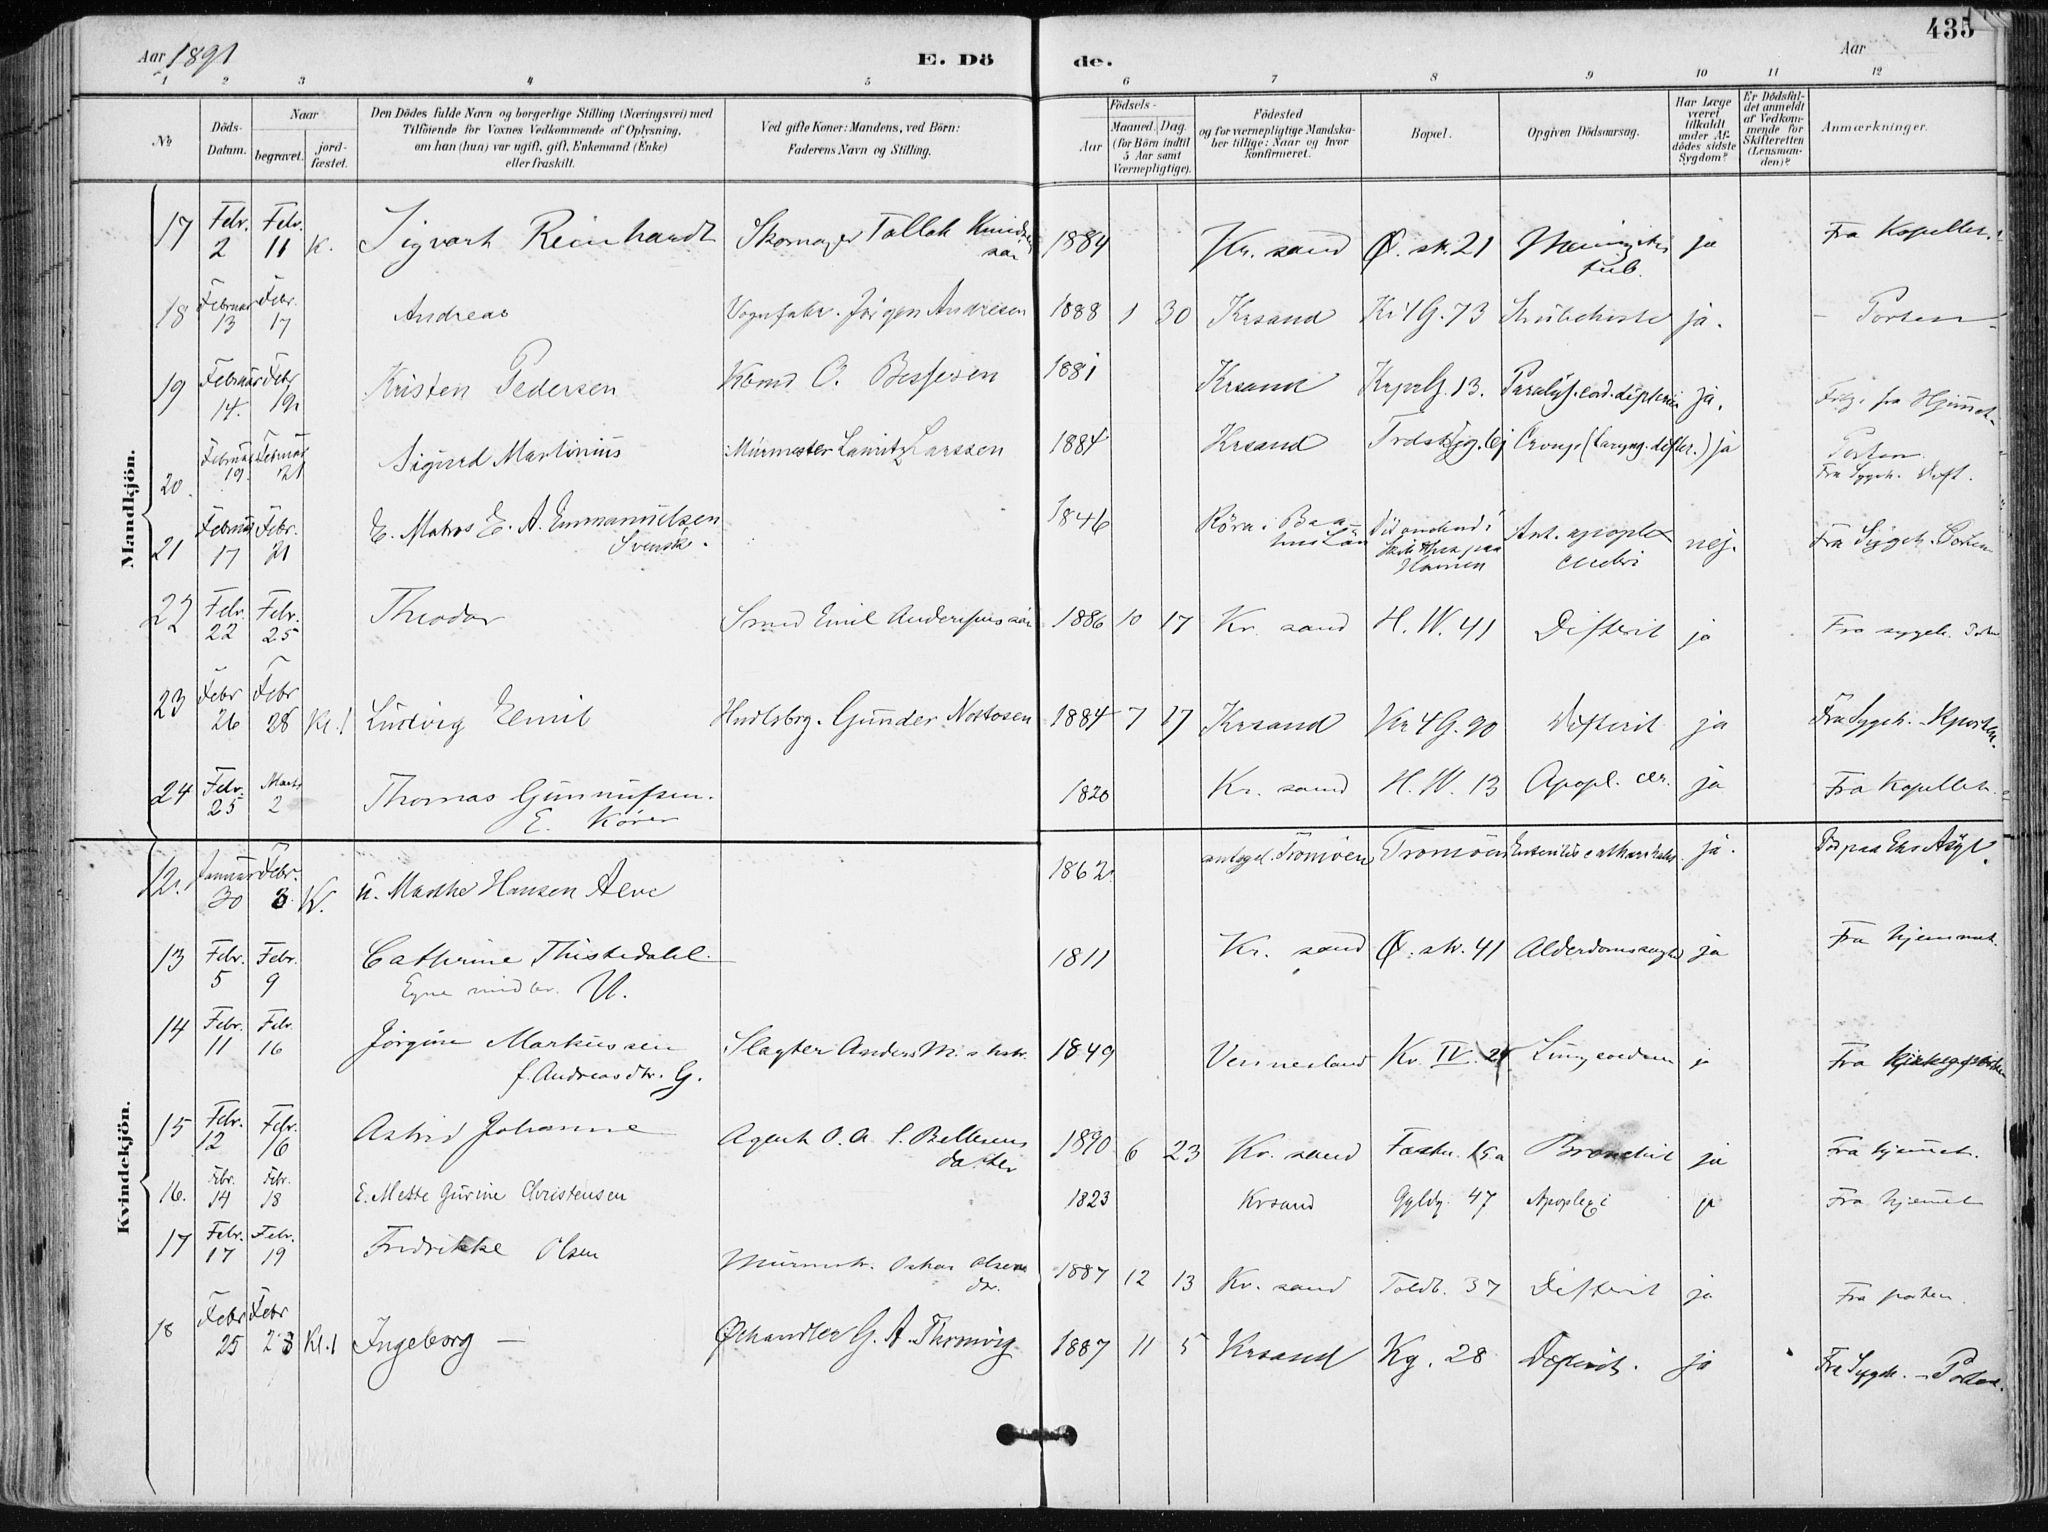 435
Aar 1891
E. Döde.
Aar
1 2 3 4 5 6 7 8 9 10 11 12
No
Döds-Datum.
Naar
begravet.
jord-fæstet.
Den Dödes fulde Navn og borgerlige Stilling (Næringsvei) med
Tilföiende for Voxnes Vedkommende af Oplysning,
om han (hun) var ugift, gift, Enkemand (Enke)
eller fraskilt.
Ved gifte Koner: Mandens, ved Börn:
Faderens Navn og Stilling.
Födsels-
Aar
Maaned. Dag.
(for Börn indtil
5 Aar samt
Værnepligtige).
Födested
og for værnepligtige Mandska-
ber tillige: Naar og hvor
konfirmeret.
Bopæl.
Opgiven Dödsaarsag.
Har Læge
været
tilkaldt
under Af-
dödes sidste
Sygdom?
Er Dödsfal-
det anmeldt
af Vedkom-
mende for
Skifteretten
(Lensman-
den)?
Anmærkninger.
Mandkjön.
17 Febr. 2 Febr. 11 K. Sigvart Reinhardt Skomager Tallak Knudsens sön 1884 Kr. sand Ø. str. 21 tub. ja Fra Kapellet.
18 Februar 13 Febr. 17 Andreas Vognfabr. Jörgen Andresen 1888 1 30 Krsand Kr 4 G. 73 Strubehoste ja. - Porten
19 Februar 14. Febr 19 Kristen Pedersen Kbmd O. Bessesen 1881 Krsand 13. Paralys. cord. difteri ja. fra Hjemmet
20. Februar 19. Februar 21 Sigurd Martinius Murmester Lauritz Larssen 1884 Krsand Croup (Laryng. difter.) ja Porten. Fra Sygeh. Dift.
21 Februar 17 Febr. 21 E. Matros E. A. Emmanuelsen Svensk. 1846 Röra i Baahus Län paa Havnen apoplex nej. Fra Sygeh. Porten
22 Febr. 22 Febr. 25 Theodor Smed Emil Andersens sön 1886 10 17 Kr. sand H. W. 41 Difterit ja Fra sygeh. Porten
23 Febr 26 Febr 28 Kl. 1 Ludvig Elmil Gunder 1884 7 17 Krsand Kr 4 G. 90 Difterit ja Fra Sygeh. - Kporten.
24 Febr. 25 Marts 2 Thomas Gunnufsen. E. 1820 Kr. sand H. W. 13 Apopl. cer. ja Fra Kapellet.
Kvindekjön.
12. Januar 30 Febr. 3 K. u. Marthe Hansen Alve 1862 Tromöen Tromöen Enteritis catharrhalis ja. Död paa Eks Asyl.
13 Febr. 5 Febr. 9 Cathrine Thistedahl. Egne midler. U. 1811 Kr. sand Ø. str. 41 Alderdomssvaghed ja Fra hjemmet.
14 Febr. 11 Febr. 16 Jörgine Markussen f. Andreasdtr. G. Slagter Anders M. s hstr. 1849 Vennesland Kr. IV. 24 Lungeoedem ja Fra kirkegporten
15 Febr. 12 Febr. 16 Astrid Johanne Agent O. A. S. Bellesens datter 1890 6 23 Kr. sand Festn. 15a Bronchit ja Fra hjemmet.
16. Febr. 14 Febr. 18 E. Mette Gurine Christensen 1823 Krsand Gyldg. 47 Apoplexi ja Fra hjemmet
17 Febr. 17 Febr. 19 Fredrikke Olsen Murmstr. Oskar Olsens dtr. 1887 12 13 Kr. sand Toldb. 37 Difterit ja Fra porten.
18 Febr 25 Febr 28 Kl. 1 Ingeborg - Ølhandler G. A. Thronvig 1887 11 5 Krsand Kg. 28 ja Fra Sygeh. - Porten.